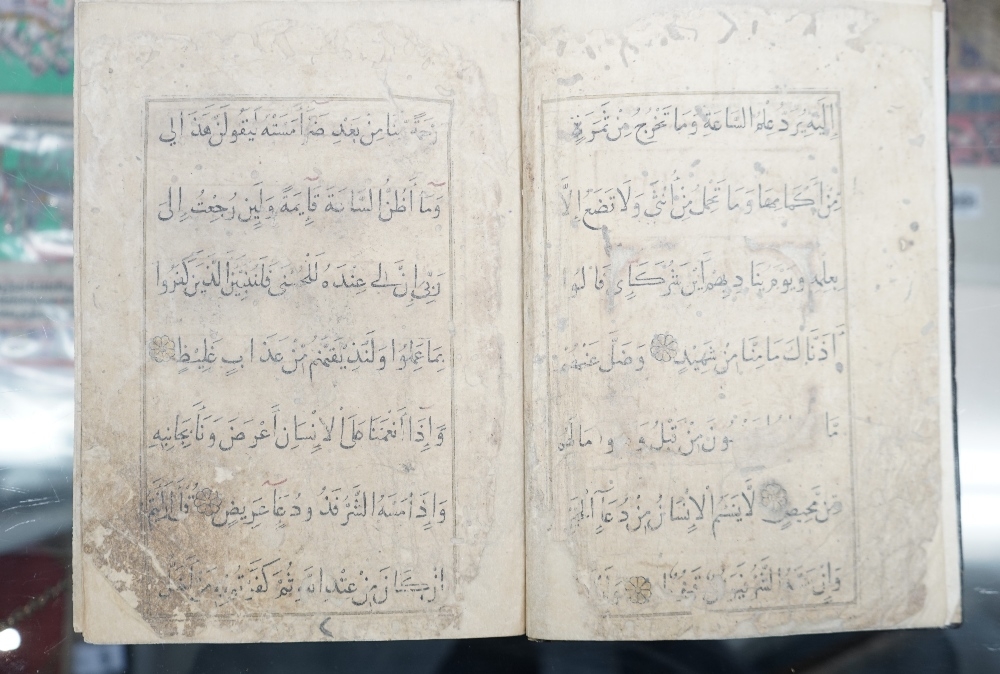 إِلَيْهِ يُرَدُّ عِلْمُ السَّاعَةِ وَمَا تَخْرُجُ مِنْ ثَمَرَةٍ
مِنْ أَكْمَامِهَا وَمَا تَحْمِلُ مِنْ أُنْثَى وَلَا تَضَعُ إِلَّا
بِعِلْمِهِ وَيَوْمَ يُنَادِيهِمْ أَيْنَ شُرَكَاءِي قَالُوا
آذَنَّاكَ مَا مِنَّا مِنْ شَهِيدٍ وَضَلَّ عَنْهُمْ
مَا ونَ مِنْ قَبْلُ وَ وا مَا لَهُمْ
مِنْ مَحِيصٍ لَا يَسْئَمُ الْإِنْسَانُ مِنْ دُعَاءِ الْخَيْرِ
وَإِنْ مَسَّهُ الشَّرُّ
رَحْمَةً مِنَّا مِنْ بَعْدِ ضَرَّاءَ مَسَّتْهُ لَيَقُولَنَّ هَذَا لِي
وَمَا أَظُنُّ السَّاعَةَ قَائِمَةً وَلَئِنْ رُجِعْتُ إِلَى
رَبِّي إِنَّ لِي عِنْدَهُ لَلْحُسْنَى فَلَنُنَبِّئَنَّ الَّذِينَ كَفَرُوا
بِمَا عَمِلُوا وَلَنُذِيقَنَّهُمْ مِنْ عَذَابٍ غَلِيظٍ
وَإِذَا أَنْعَمْنَا عَلَى الْإِنْسَانِ أَعْرَضَ وَنَأَ بِجَانِبِهِ
وَإِذَا مَسَّهُ الشَّرُّ فَذُو دُعَاءٍ عَرِيضٍ قُلْ أَرَأَيْتُمْ
إِنْ كَانَ مِنْ عِنْدِ اللَّهِ ثُمَّ كَفَرْتُمْ بِهِ مَنْ أَضَلُّ